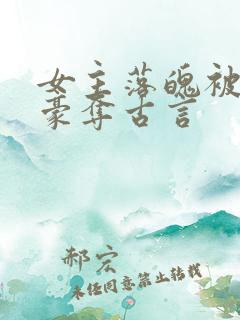 女主落魄被
豪夺古言
郝宏
未经同意禁止转载